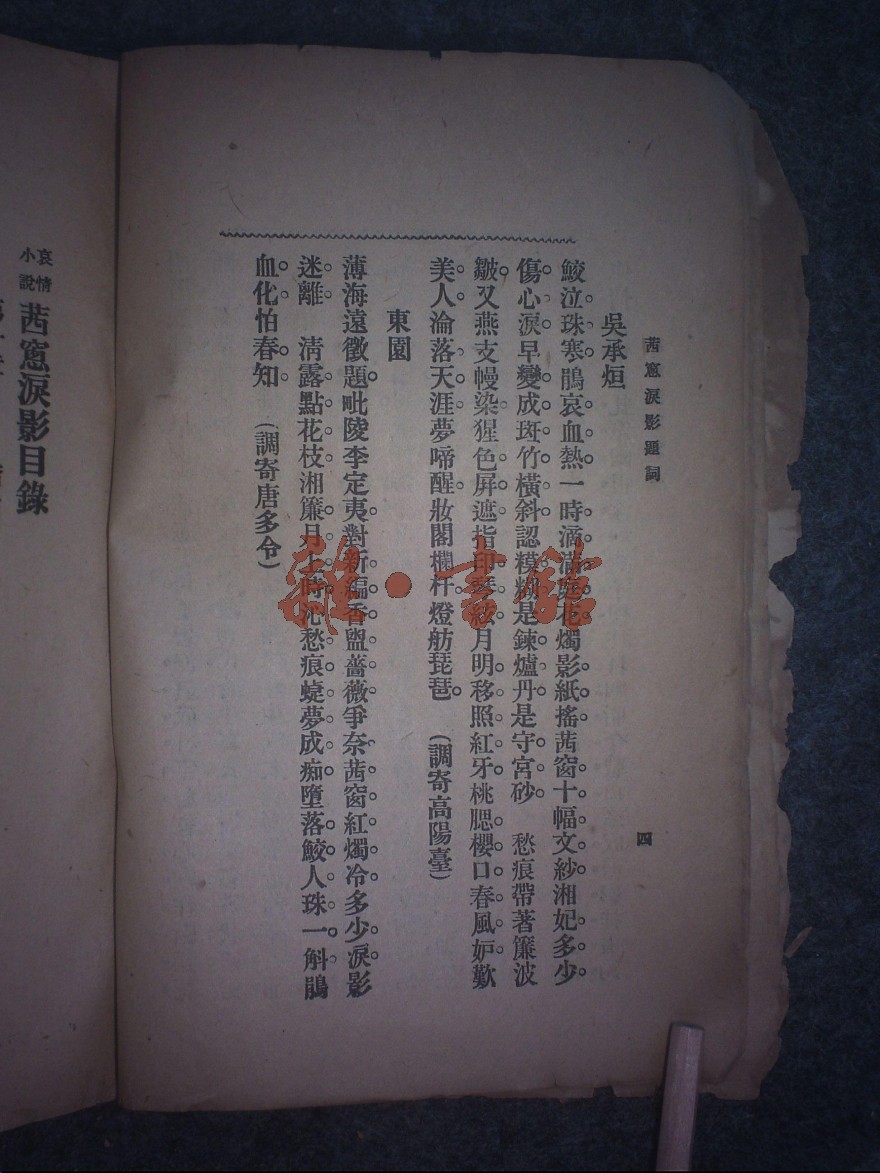 茜窻淚影題詞
四
吳承烜
鮫泣珠寒鵑哀血熱一時滴滿窓花燭影紙搖茜窗十幅文紗湘妃多少
傷心淚早變成斑竹橫斜認模糊是鍊爐丹是守宮砂　愁痕帶著簾波
皺又燕支幔染猩色屏遮指印琴紋月明移照紅牙桃腮櫻口春風妒歎
美人淪落天涯夢啼醒妝閣欄杆燈舫琵琶　（調寄高陽臺）
東園
薄海遠徵題毗陵李定夷對新編香盥薔薇爭奈茜窗紅燭冷多少淚影
迷離　清露點花枝湘簾月上時沁愁痕蜨夢成痴墮落鮫人珠一斛鵑
血化怕春知　（調寄唐多令）
哀情小說
茜窻淚影目錄
雜·書館